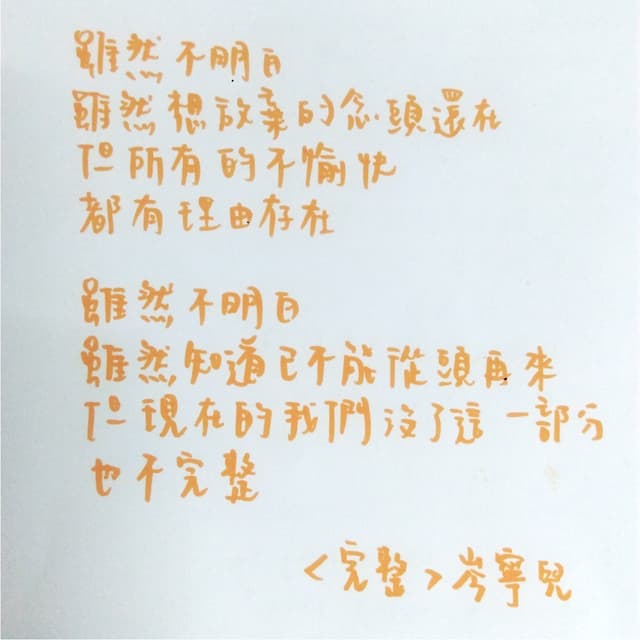 雖然不明白
雖然想放棄的念頭還在
但所有的不愉快
都有理由存在
雖然不明白
雖然知道已不能從頭再來
但現在的我們沒了這一部分
也不完整
<完整>岑寧兒